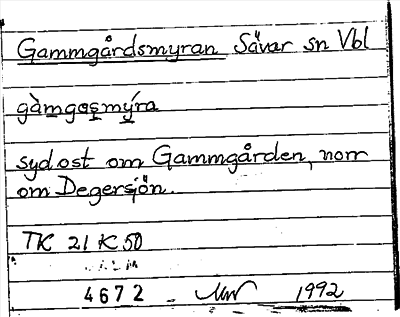 Gammgårdsmyran Sävar sn Vbl
gàmgaṣmýra
sydost om Gammgården, norr
om Degersjön.
TK 21 K 50
4672 1992